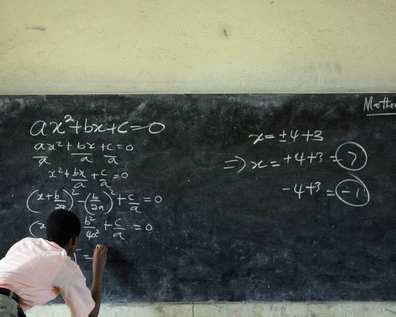 ax²+bx+c=0
ax²/a + bx/a + c/a =0
x²+ bx/a + c/a =0
(x+ b/2a)² - (b/2a)² + c/a = 0
b²/4a² + c/a = 0
=
Mathe
x= ±4+3
⇒ x= +4+3 = 7
-4+3 = -1